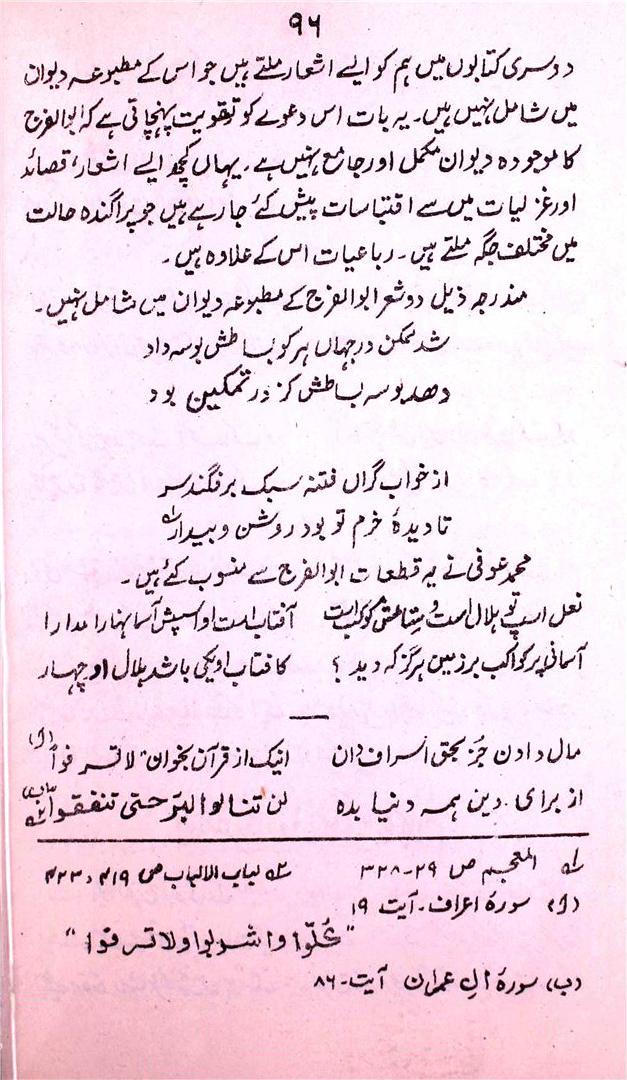 ۹۶
دوسری کتابوں میں ہم کو ایسے اشعار ملتے ہیں جو اس کے مطبوعہ دیوان
میں شامل نہیں ہیں۔ یہ بات اس دعوے کو تقویت پہنچاتی ہے کہ ابوالفرج
کا موجودہ دیوان مکمل اور جامع نہیں ہے۔ یہاں کچھ ایسے اشعار، قصائد
اور غزلیات میں سے اقتباسات پیش کئے جا رہے ہیں جو پراگندہ حالت
میں مختلف جگہ ملتے ہیں۔ رباعیات اس کے علاوہ ہیں۔
مندرجہ ذیل دو شعر ابوالفرج کے مطبوعہ دیوان میں شامل نہیں۔
شد ممکن در جہاں ہر کو بساطش بوسہ داد
دھد بوسہ بساطش کز در تمکین بود
از خواب گراں فتنہ سبک بر فگند سر
تا دیدۂ خرم تو بود روشن و بیدار ؎۱
محمد عوفی نے یہ قطعات ابوالفرج سے منسوب کئے ہیں۔
نعل اسپ تو ہلال است و کوکب است آفتاب است او اسپش آسمانہا را مدارا
آسمانی پر کواکب بر زمین ہرگز کہ دید ؟ کافتاب او یکی باشد ہلال او چہار
مال دادن جز بحق اسراف دان اینک از قرآن بخوان "لا تسرفوا" (ا)
از برای دین ہمہ دنیا بدہ لن تنالوا البرّ حتی تنفقوا (ب) ؎۲
؎۱ المعجم ص ۲۹-۳۲۸ ؎۲ لباب الالباب ص ۴۱۹ ، ۴۲۳
(ا) سورۂ اعراف۔ آیت ۱۹
"کُلّوا واشربوا ولا تسرفوا"
(ب) سورۂ اٰلِ عمران آیت۔ ۸۶